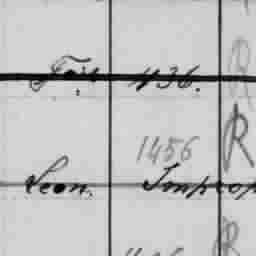 436. R
1456 R
Leon. Improp
R